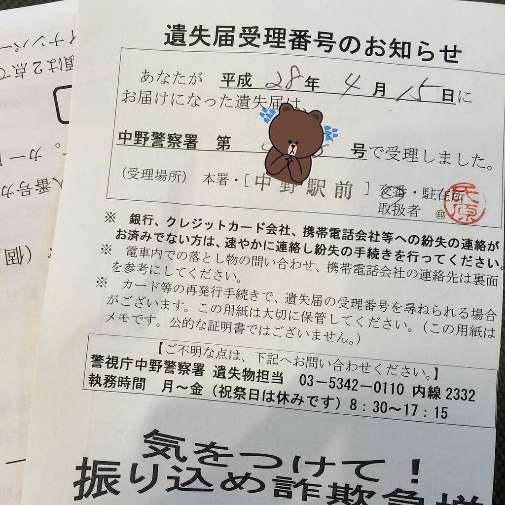 遺失届受理番号のお知らせ
あなたが 平成 28 年 4 月 15 日に
お届けになった遺失届は、
中野警察署 第 号で受理しました。
(受理場所) 本署・[中野駅前] 交番・駐在所
取扱者 ㊞
※ 銀行、クレジットカード会社、携帯電話会社等への紛失の連絡が
お済みでない方は、速やかに連絡し紛失の手続きを行ってください。
※ 電車内での落とし物の問い合わせ、携帯電話会社の連絡先は裏面
を参考にしてください。
※ カード等の再発行手続きで、遺失届の受理番号を尋ねられる場合
がございます。この用紙は大切に保管してください。(この用紙は
メモです。公的な証明書ではございません。)
【ご不明な点は、下記へお問い合わせください。】
警視庁中野警察署 遺失物担当 03-5342-0110 内線 2332
執務時間 月~金(祝祭日は休みです)8:30~17:15
気をつけて!
振り込め詐欺急増
イナンバー
頂は2点で
カード
番号カ
(個